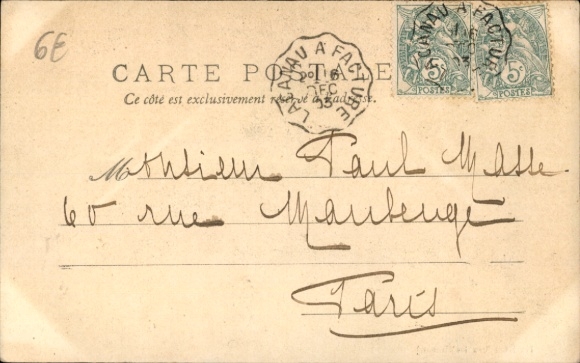 6€
CARTE POSTALE
Ce côté est exclusivement réservé à l'adresse.
LACANAU A FACTURE
2º 16
DEC
03
5c 5c
POSTES POSTES
Monsieur Paul Masse
60 rue Maubeuge
Paris